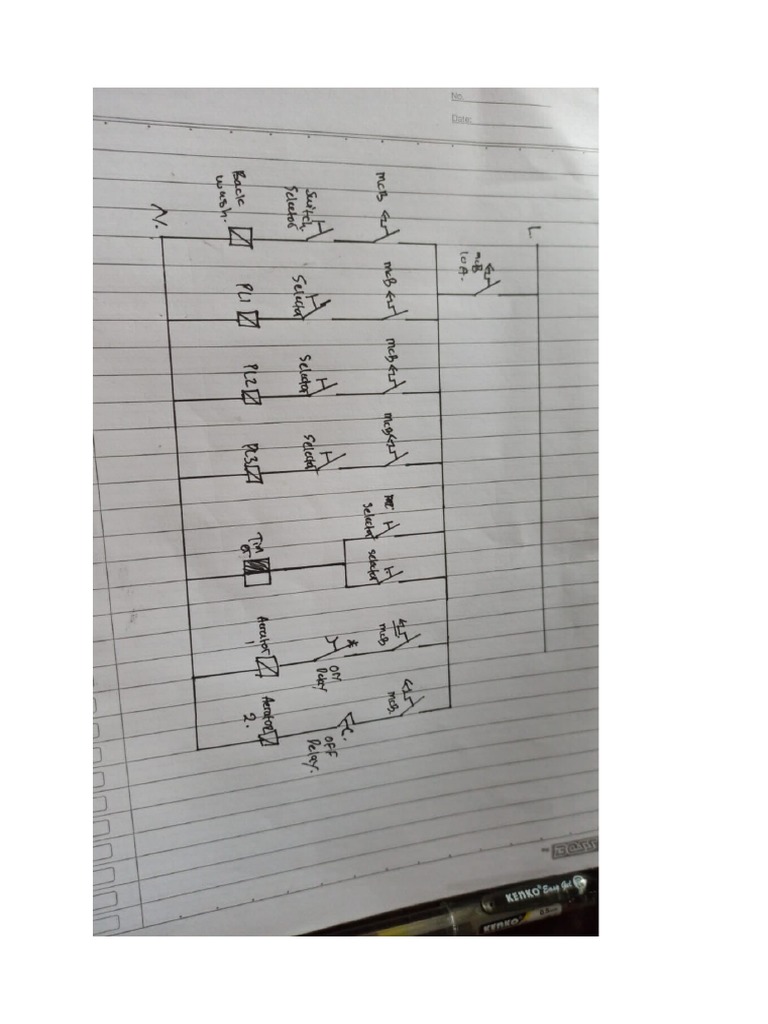 No.
Date:
L
mcB
10A.
mcB
mcB
mcB
mcB
selector
selector
mcB
mcB.
Switch
Selector
Selector
Selector
Selector
ON
Delay
OFF
Delay.
Back
wash.
PL1
PL2
PL3
Tim
er
Aerator
1
Aerator
2.
N.
KENKO Easy Gel
KENKO